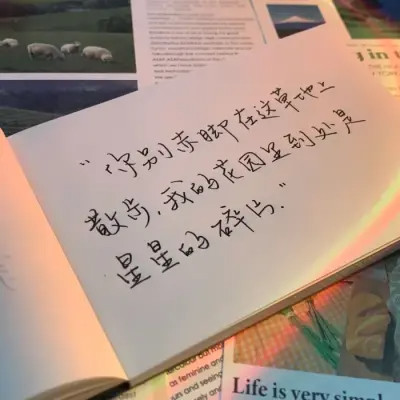 g in t
"你别赤脚在这草地上
散步,我的花园里到处是
星星的碎片."
as feminine and
sun and seeing
Life is very simpl